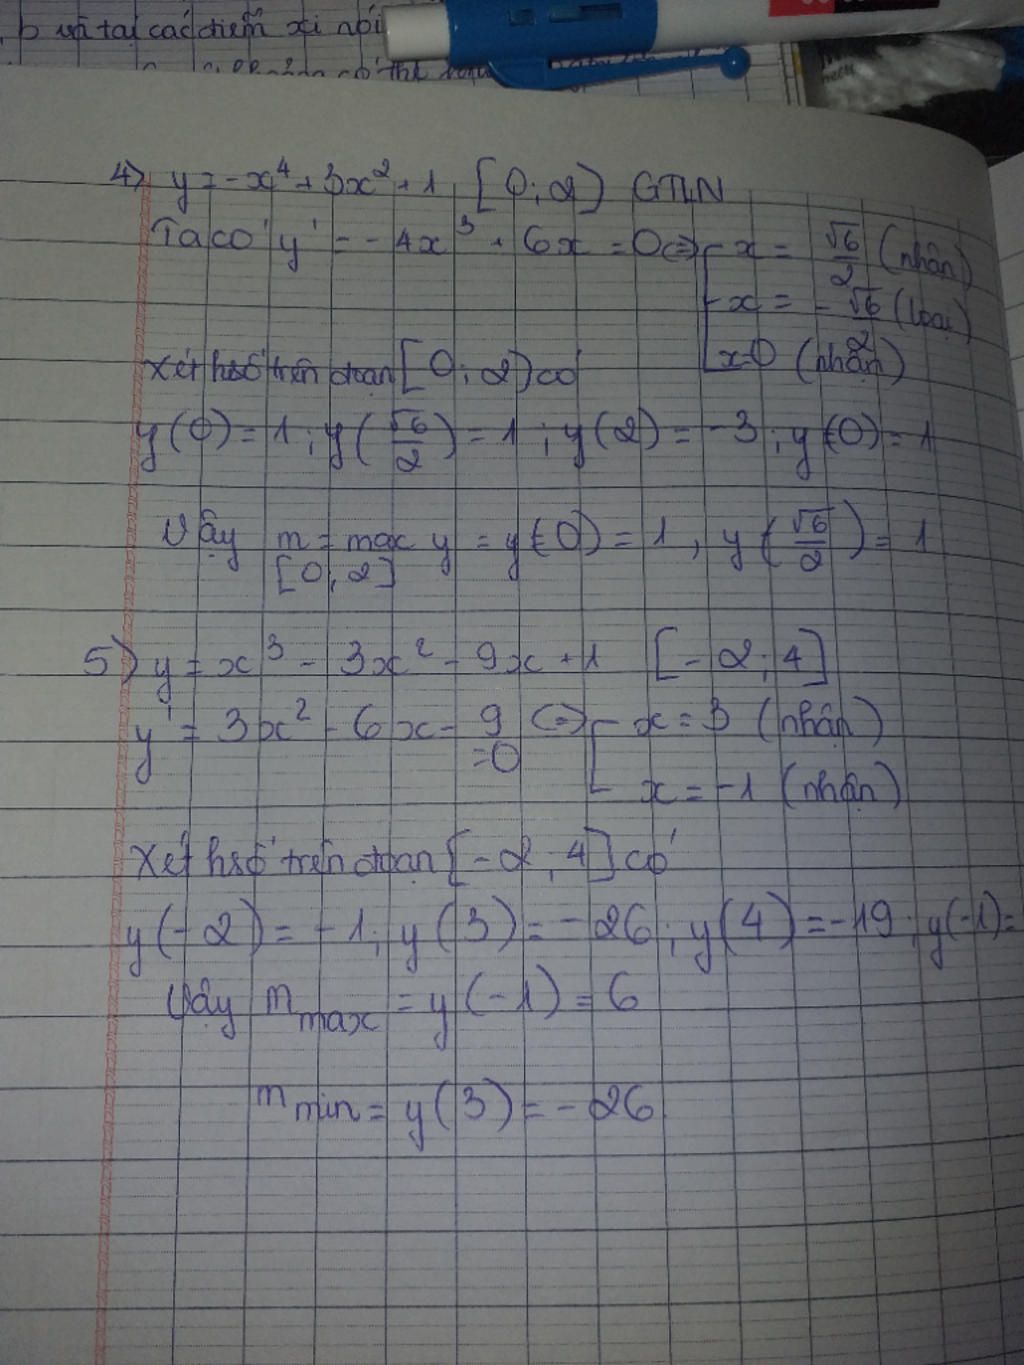 b và tại các điểm xi nói
4) y = -x⁴ + 3x² + 1 [0; 2] GTLN
Ta có y' = -4x³ + 6x = 0 <=> x = √6/2 (nhận)
x = -√6/2 (loại)
x=0 (nhận)
Xét hsố trên đoạn [0; 2] có
y(0) = 1; y(√6/2) = 1; y(2) = -3; y(0) = 1
Vậy m = max y = y(0) = 1, y(√6/2) = 1
[0, 2]
5) y = x³ - 3x² - 9x + 1 [-2; 4]
y' = 3x² - 6x - 9 <=> x = 3 (nhận)
=0
x = -1 (nhận)
Xét hsố trên đoạn [-2, 4] có
y(-2) = -1; y(3) = -26; y(4) = -19; y(-1) =
Vậy m max = y(-1) = 6
m min = y(3) = -26